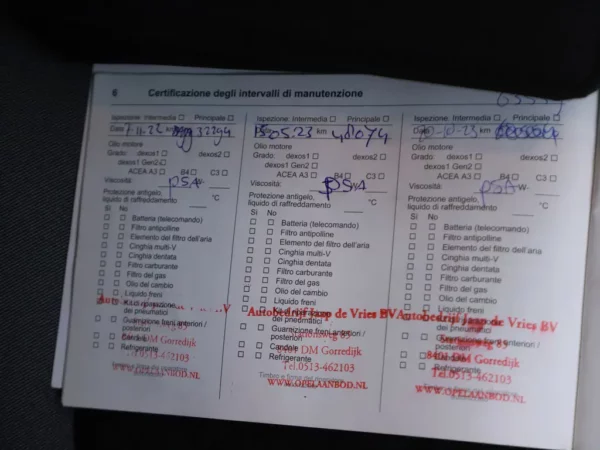 6 Certificazione degli intervalli di manutenzione
Ispezione: Intermedia Principale
Data 7-11-22 km 32294
Olio motore
Grado: dexos1 dexos2
dexos1 Gen2
ACEA A3 B4 C3
Viscosità: PSA
Protezione antigelo, °C
liquido di raffreddamento
Sì No
Batteria (telecomando)
Filtro antipolline
Elemento del filtro dell'aria
Cinghia multi-V
Cinghia dentata
Filtro carburante
Filtro del gas
Olio del cambio
Liquido freni
Kit di riparazione
dei pneumatici
Guarnizione freni anteriori /
posteriori
Candele
Refrigerante
DM Gorredijk
Tel.0513-462103
WWW.OPELAANBOD.NL
Ispezione: Intermedia Principale
Data 15.05.23 km 48074
Olio motore
Grado: dexos1 dexos2
dexos1 Gen2
ACEA A3 B4 C3
Viscosità: PSA W-
Protezione antigelo, °C
liquido di raffreddamento
Sì No
Batteria (telecomando)
Filtro antipolline
Elemento del filtro dell'aria
Cinghia multi-V
Cinghia dentata
Filtro carburante
Filtro del gas
Olio del cambio
Liquido freni
Autobedrijf Jaap de Vries BV
dei pneumatici
Guarnizione freni anteriori /
posteriori
Candele
Refrigerante
8401 DM Gorredijk
Tel.0513-462103
Timbro e firma del
WWW.OPELAANBOD.NL
Ispezione: Intermedia Principale
Data -10-23 km
Olio motore
Grado: dexos1 dexos2
dexos1 Gen2
ACEA A3 B4 C3
Viscosità: PSA W-
Protezione antigelo, °C
liquido di raffreddamento
Sì No
Batteria (telecomando)
Filtro antipolline
Elemento del filtro dell'aria
Cinghia multi-V
Cinghia dentata
Filtro carburante
Filtro del gas
Olio del cambio
Liquido freni
Autobedrijf Jaap de Vries BV
dei pneumatici
Guarnizione freni anteriori /
posteriori
Candele
Refrigerante
8401 DM Gorredijk
Tel.0513-462103
WWW.OPELAANBOD.NL